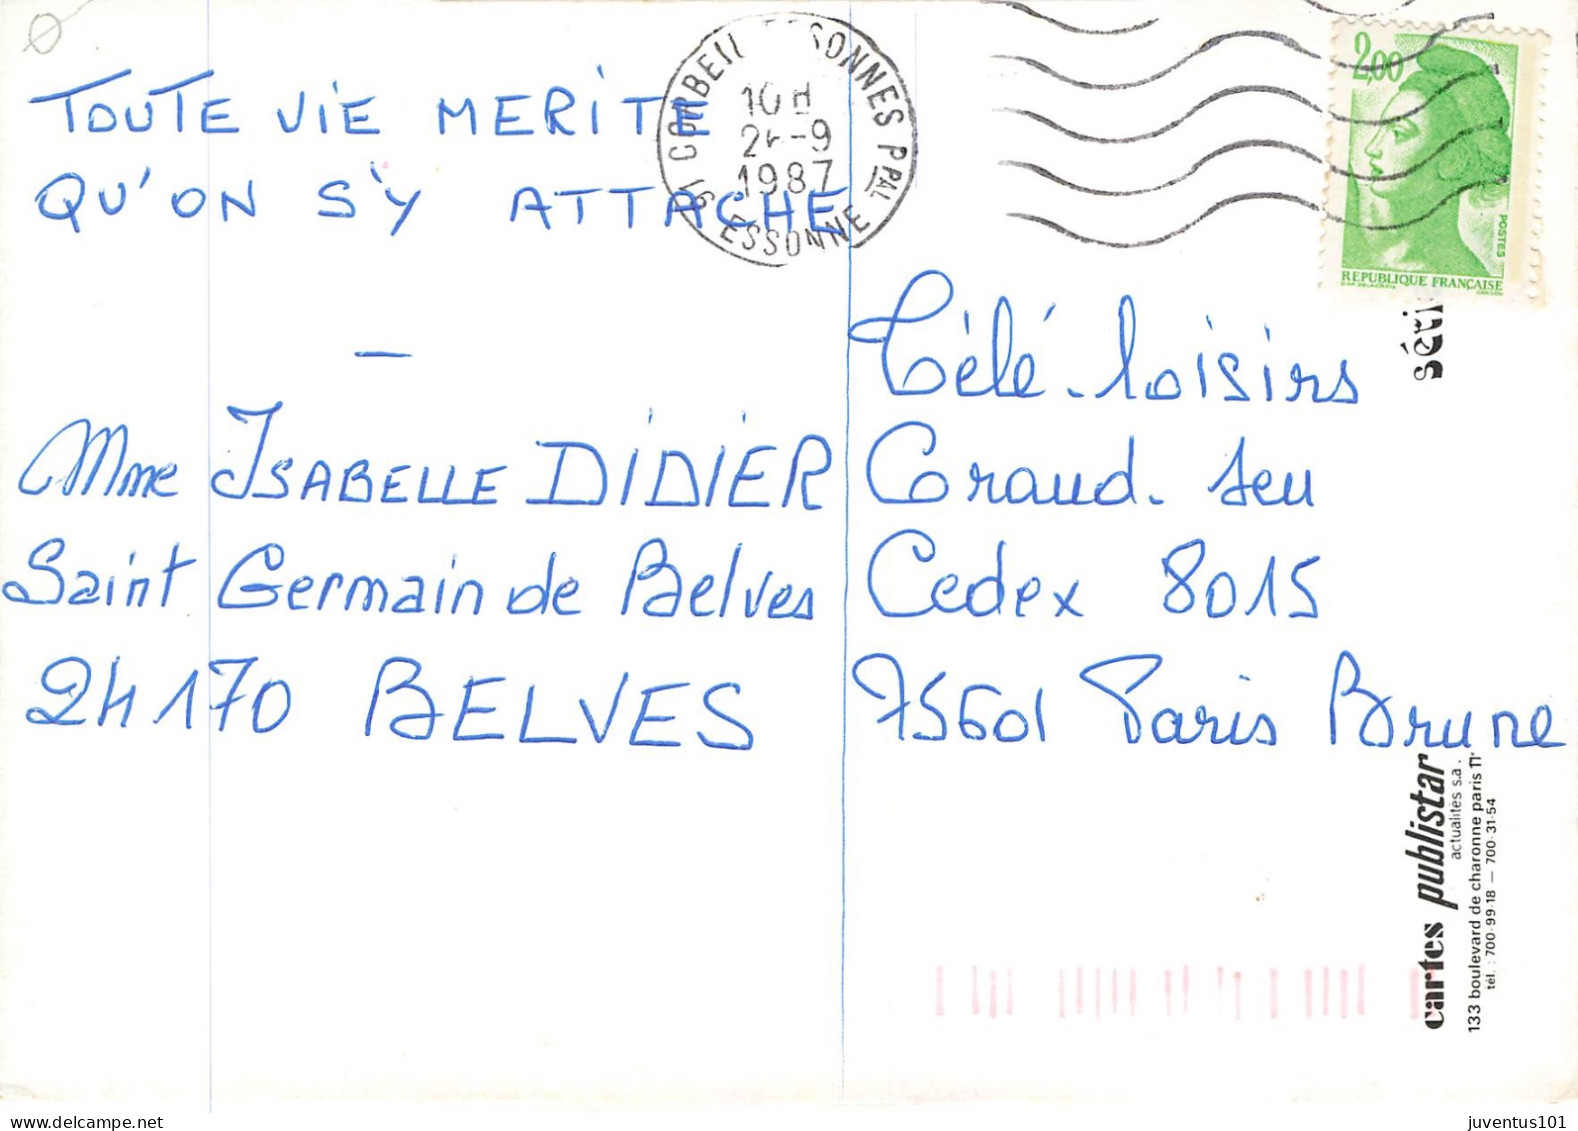 TOUTE VIE MERITE
QU'ON S'Y ATTACHE
—
Mme ISABELLE DIDIER
Saint Germain de Belves
24170 BELVES
91 CORBEIL ESSONNES PPAL
10H
-9
1987
ESSONNE
2,00
POSTES
REPUBLIQUE FRANÇAISE
Télé-loisirs
Grand Jeu
Cedex 8015
75601 Paris Brune
cartes publistar
actualités s.a.
133 boulevard de charonne paris 11e
tél. : 700-99-18 — 700-31-54
delcampe.net
juventus101